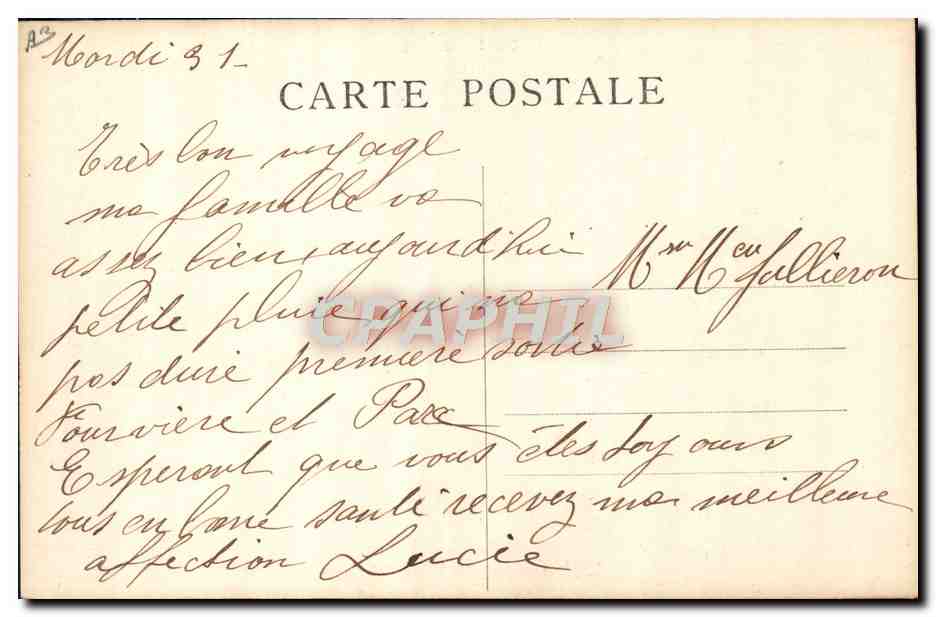 A3
Mardi 31
CARTE POSTALE
Très bon voyage
ma famille va
assez bien, aujourd'hui
petite pluie qui na
pas duré première sortie
Fourvière et Parc
Esperant que vous êtes toujours
tous en bone santé recevez ma meilleure
affection Lucie
Mr Gallieron
CPAPHIL